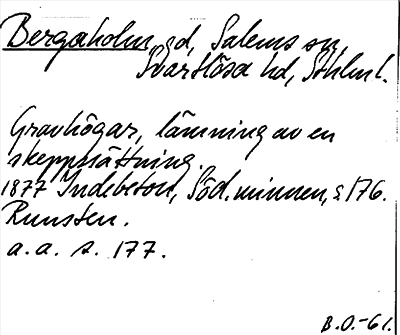 Bergaholm gd, Salems sn
Svartlösa hd, Sthlm l.
Gravhögar, lämning av en
skeppssättning.
1877 Indebetou, Söd. minnen, s 176.
Runsten.
a. a. s. 177.
B.O.-61.